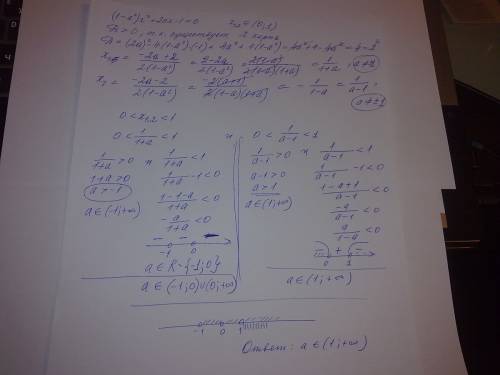 (1-a²)x²+2ax-1=0     x₁,₂ ∈ (0;1)
D>0, т.к. существует 2 корня
D = (2a)²-4(1-a²)·(-1) = 4a²+4(1-a²) = 4a²+4-4a² = 4 = 2²
= (-2a+2)/(2(1-a²)) = (2-2a)/(2(1-a²)) = 2(1-a)/(2(1-a)(1+a)) = 1/(1+a), a≠±1
= (-2a-2)/(2(1-a²)) = -2(a+1)/(2(1-a)(1+a)) = -1/(1-a) = 1/(a-1), a≠±1
0 < x₁,₂ < 1
0 < 1/(1+a) < 1 и 0 < 1/(a-1) < 1
1/(1+a) > 0 и 1/(1+a) < 1
1+a>0 1/(1+a) - 1 < 0
a>-1 (1-1-a)/(1+a) < 0
a∈(-1;+∞) -a/(1+a) < 0
- - -
-1 0
a ∈ R-{-1;0}
a ∈ (-1;0)∪(0;+∞)
1/(a-1) > 0 и 1/(a-1) < 1
a-1>0 1/(a-1) - 1 < 0
a>1 (1-a+1)/(a-1) < 0
a∈(1;+∞) -a/(a-1) < 0
a/(1-a) < 0
- + -
0 1
a ∈ (1;+∞)
-1 0 1
Ответ: a ∈ (1;+∞)